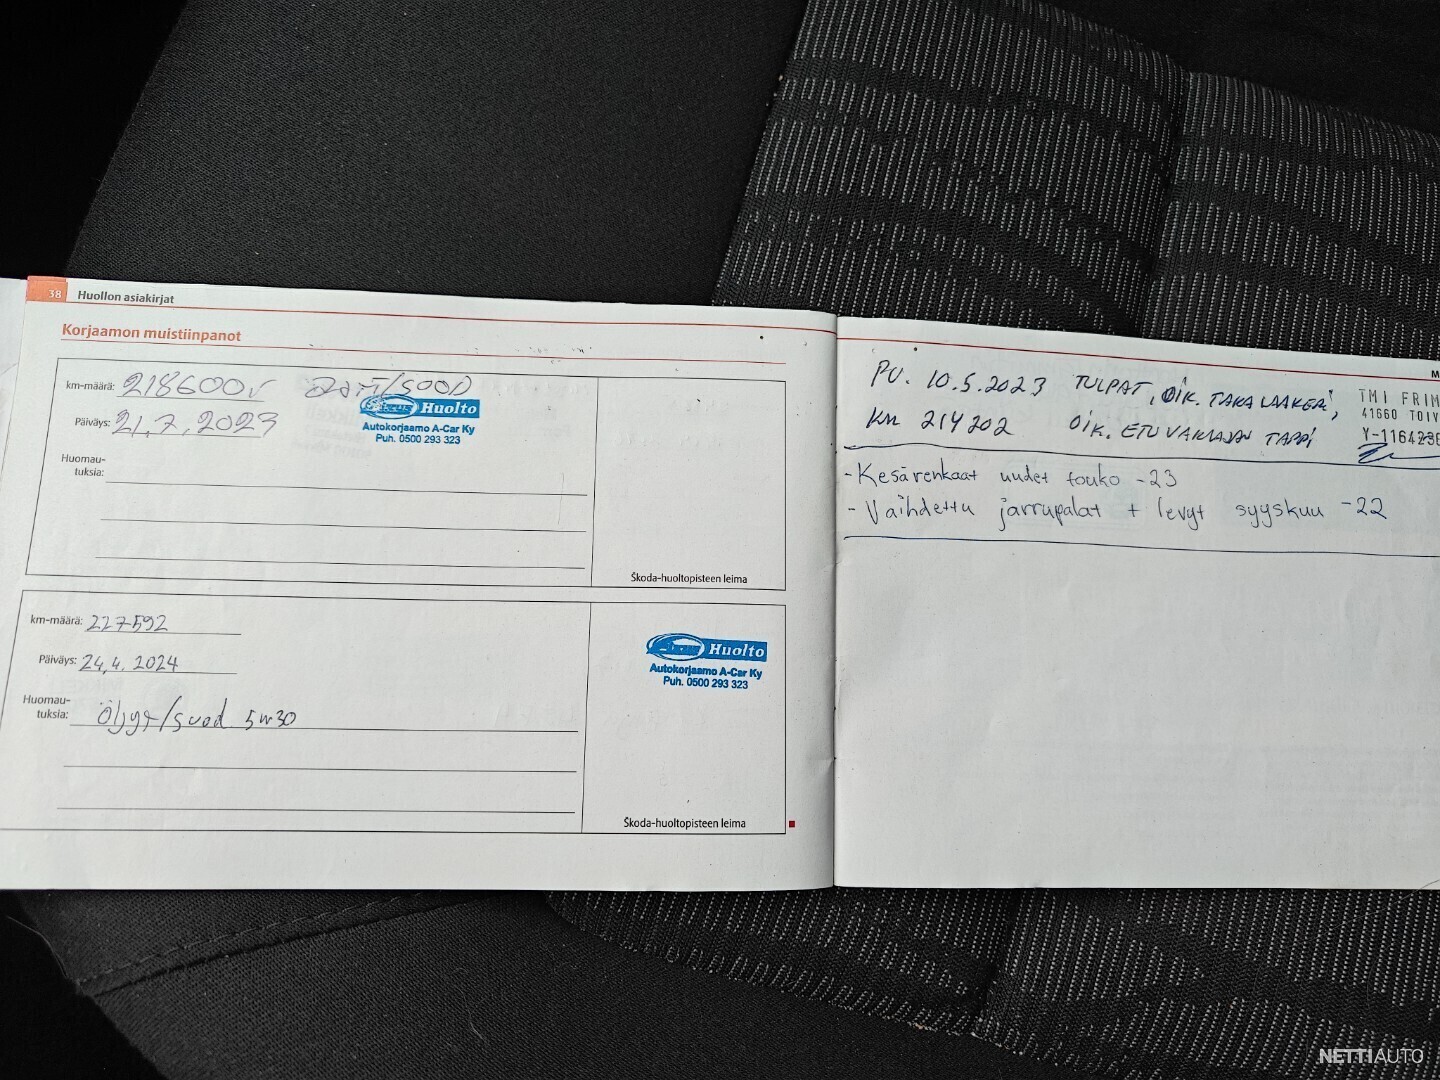 38 Huollon asiakirjat
Korjaamon muistiinpanot
km-määrä: 218600
Päiväys: 21.7.2023
Huolto
Autokorjaamo A-Car Ky
Puh. 0500 293 323
Huomau-
tuksia:
Škoda-huoltopisteen leima
km-määrä: 227592
Päiväys: 24.4.2024
Huomau-
tuksia: Öljyt/suod 5w30
Huolto
Autokorjaamo A-Car Ky
Puh. 0500 293 323
Škoda-huoltopisteen leima
M
PV. 10.5.2023 TULPAT, OIK. TAKA LAAKERI,
KM 214202 OIK. ETU VAKAAJAN TAPPI
TMI FRIM
41660 TOIV
Y-116423
- Kesärenkaat uudet touko -23
- Vaihdettu jarrupalat + levyt syyskuu -22
NETTIAUTO